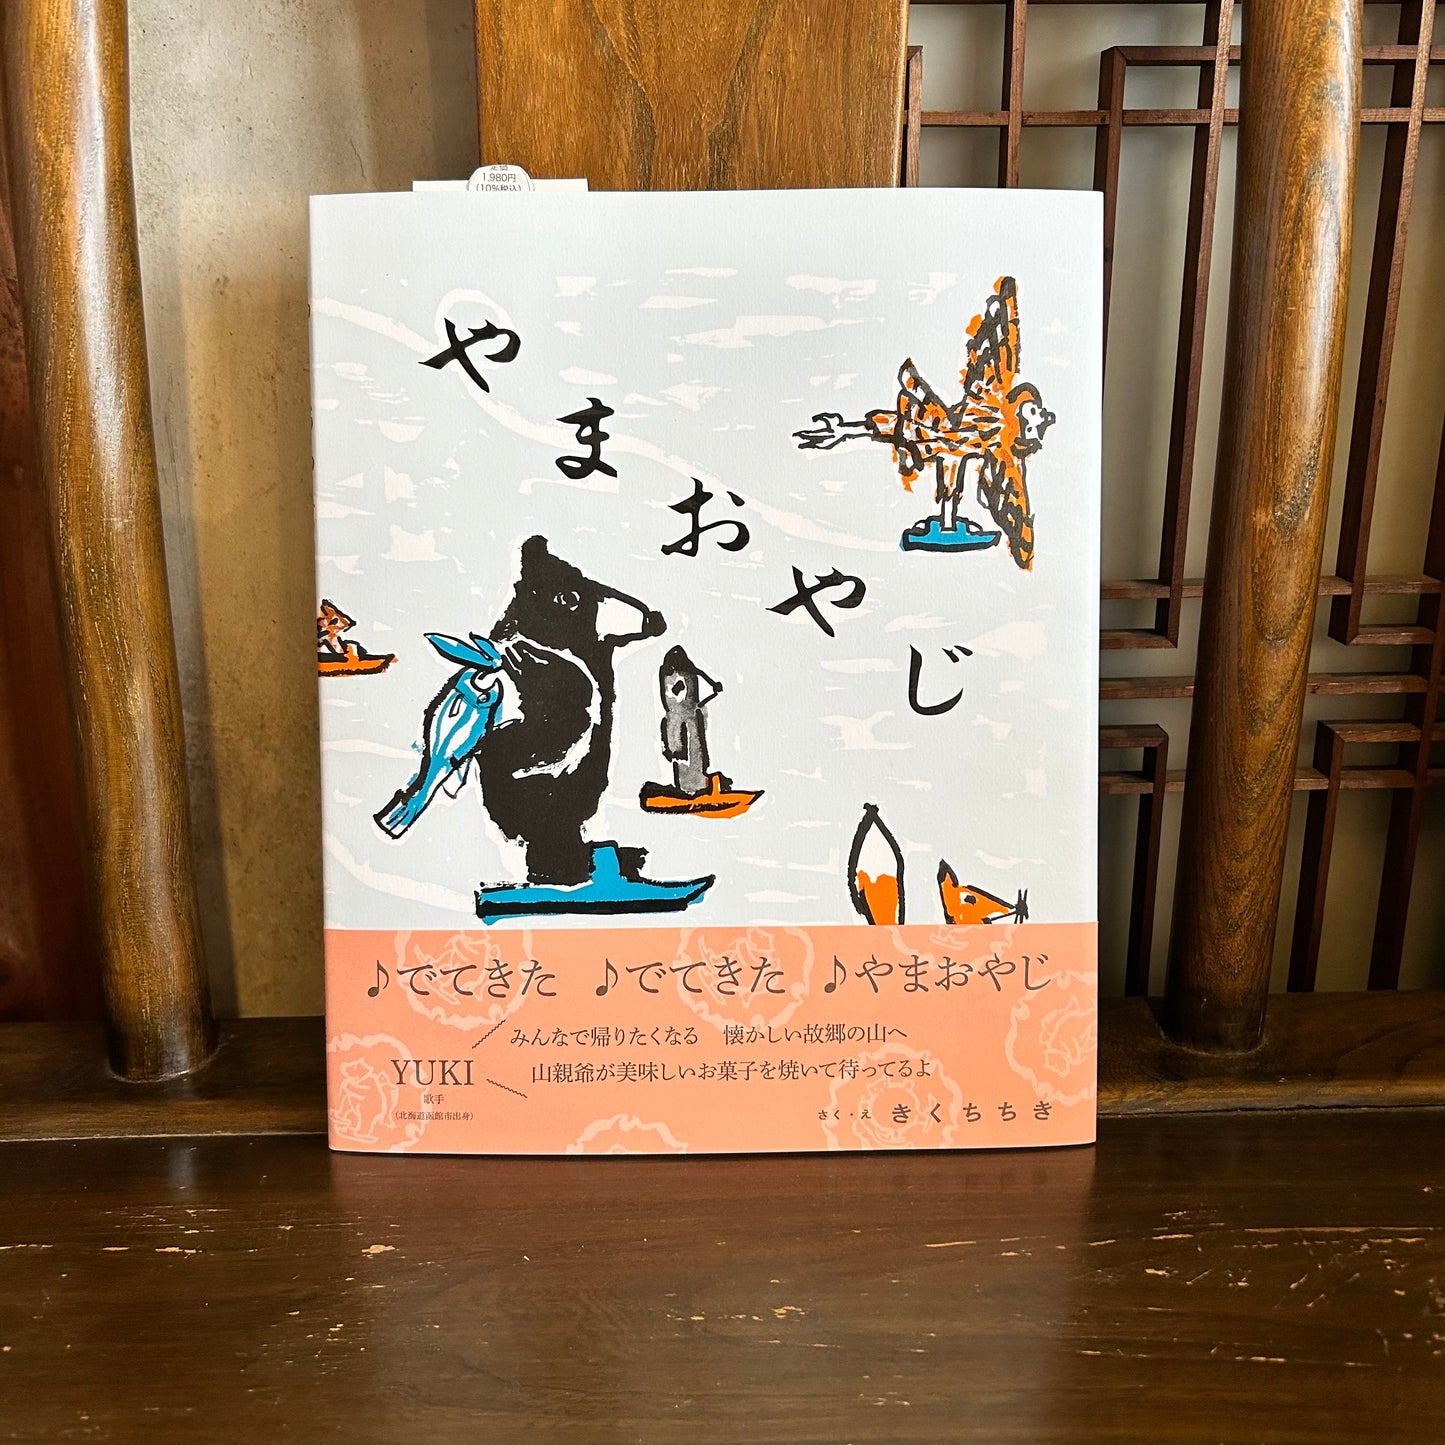 定価
1,980円
(10%税込)
やまおやじ
♪でてきた ♪でてきた ♪やまおやじ
みんなで帰りたくなる 懐かしい故郷の山へ
山親爺が美味しいお菓子を焼いて待ってるよ
YUKI
歌手
(北海道函館市出身)
さく・え きくちちき